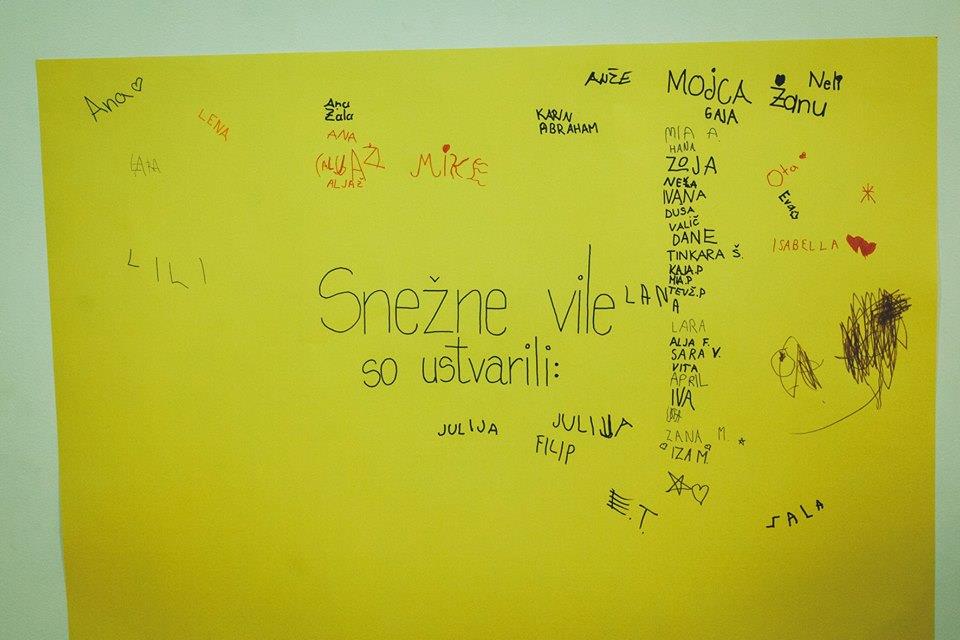 Ana
LENA
Ana
Žala
ANA
ALJAŽ
MIKE
LILI
KARIN
ABRAHAM
ANŽE
MOJCA
GAJA
Neli
Žanu
MIA A.
HANA
ZOJA
NEŠA
IVANA
DUSA
VALIČ
DANE
TINKARA Š.
KAJA.P
MIA.P
TEVŽ.P
LANA
LARA
ALJA F.
SARA V.
VITA
APRIL
IVA
ZANA M.
IZA M.
Ota
Eva
ISABELLA
Snežne vile
so ustvarili:
JULIJA
JULIJA
FILIP
E.T.
SALA